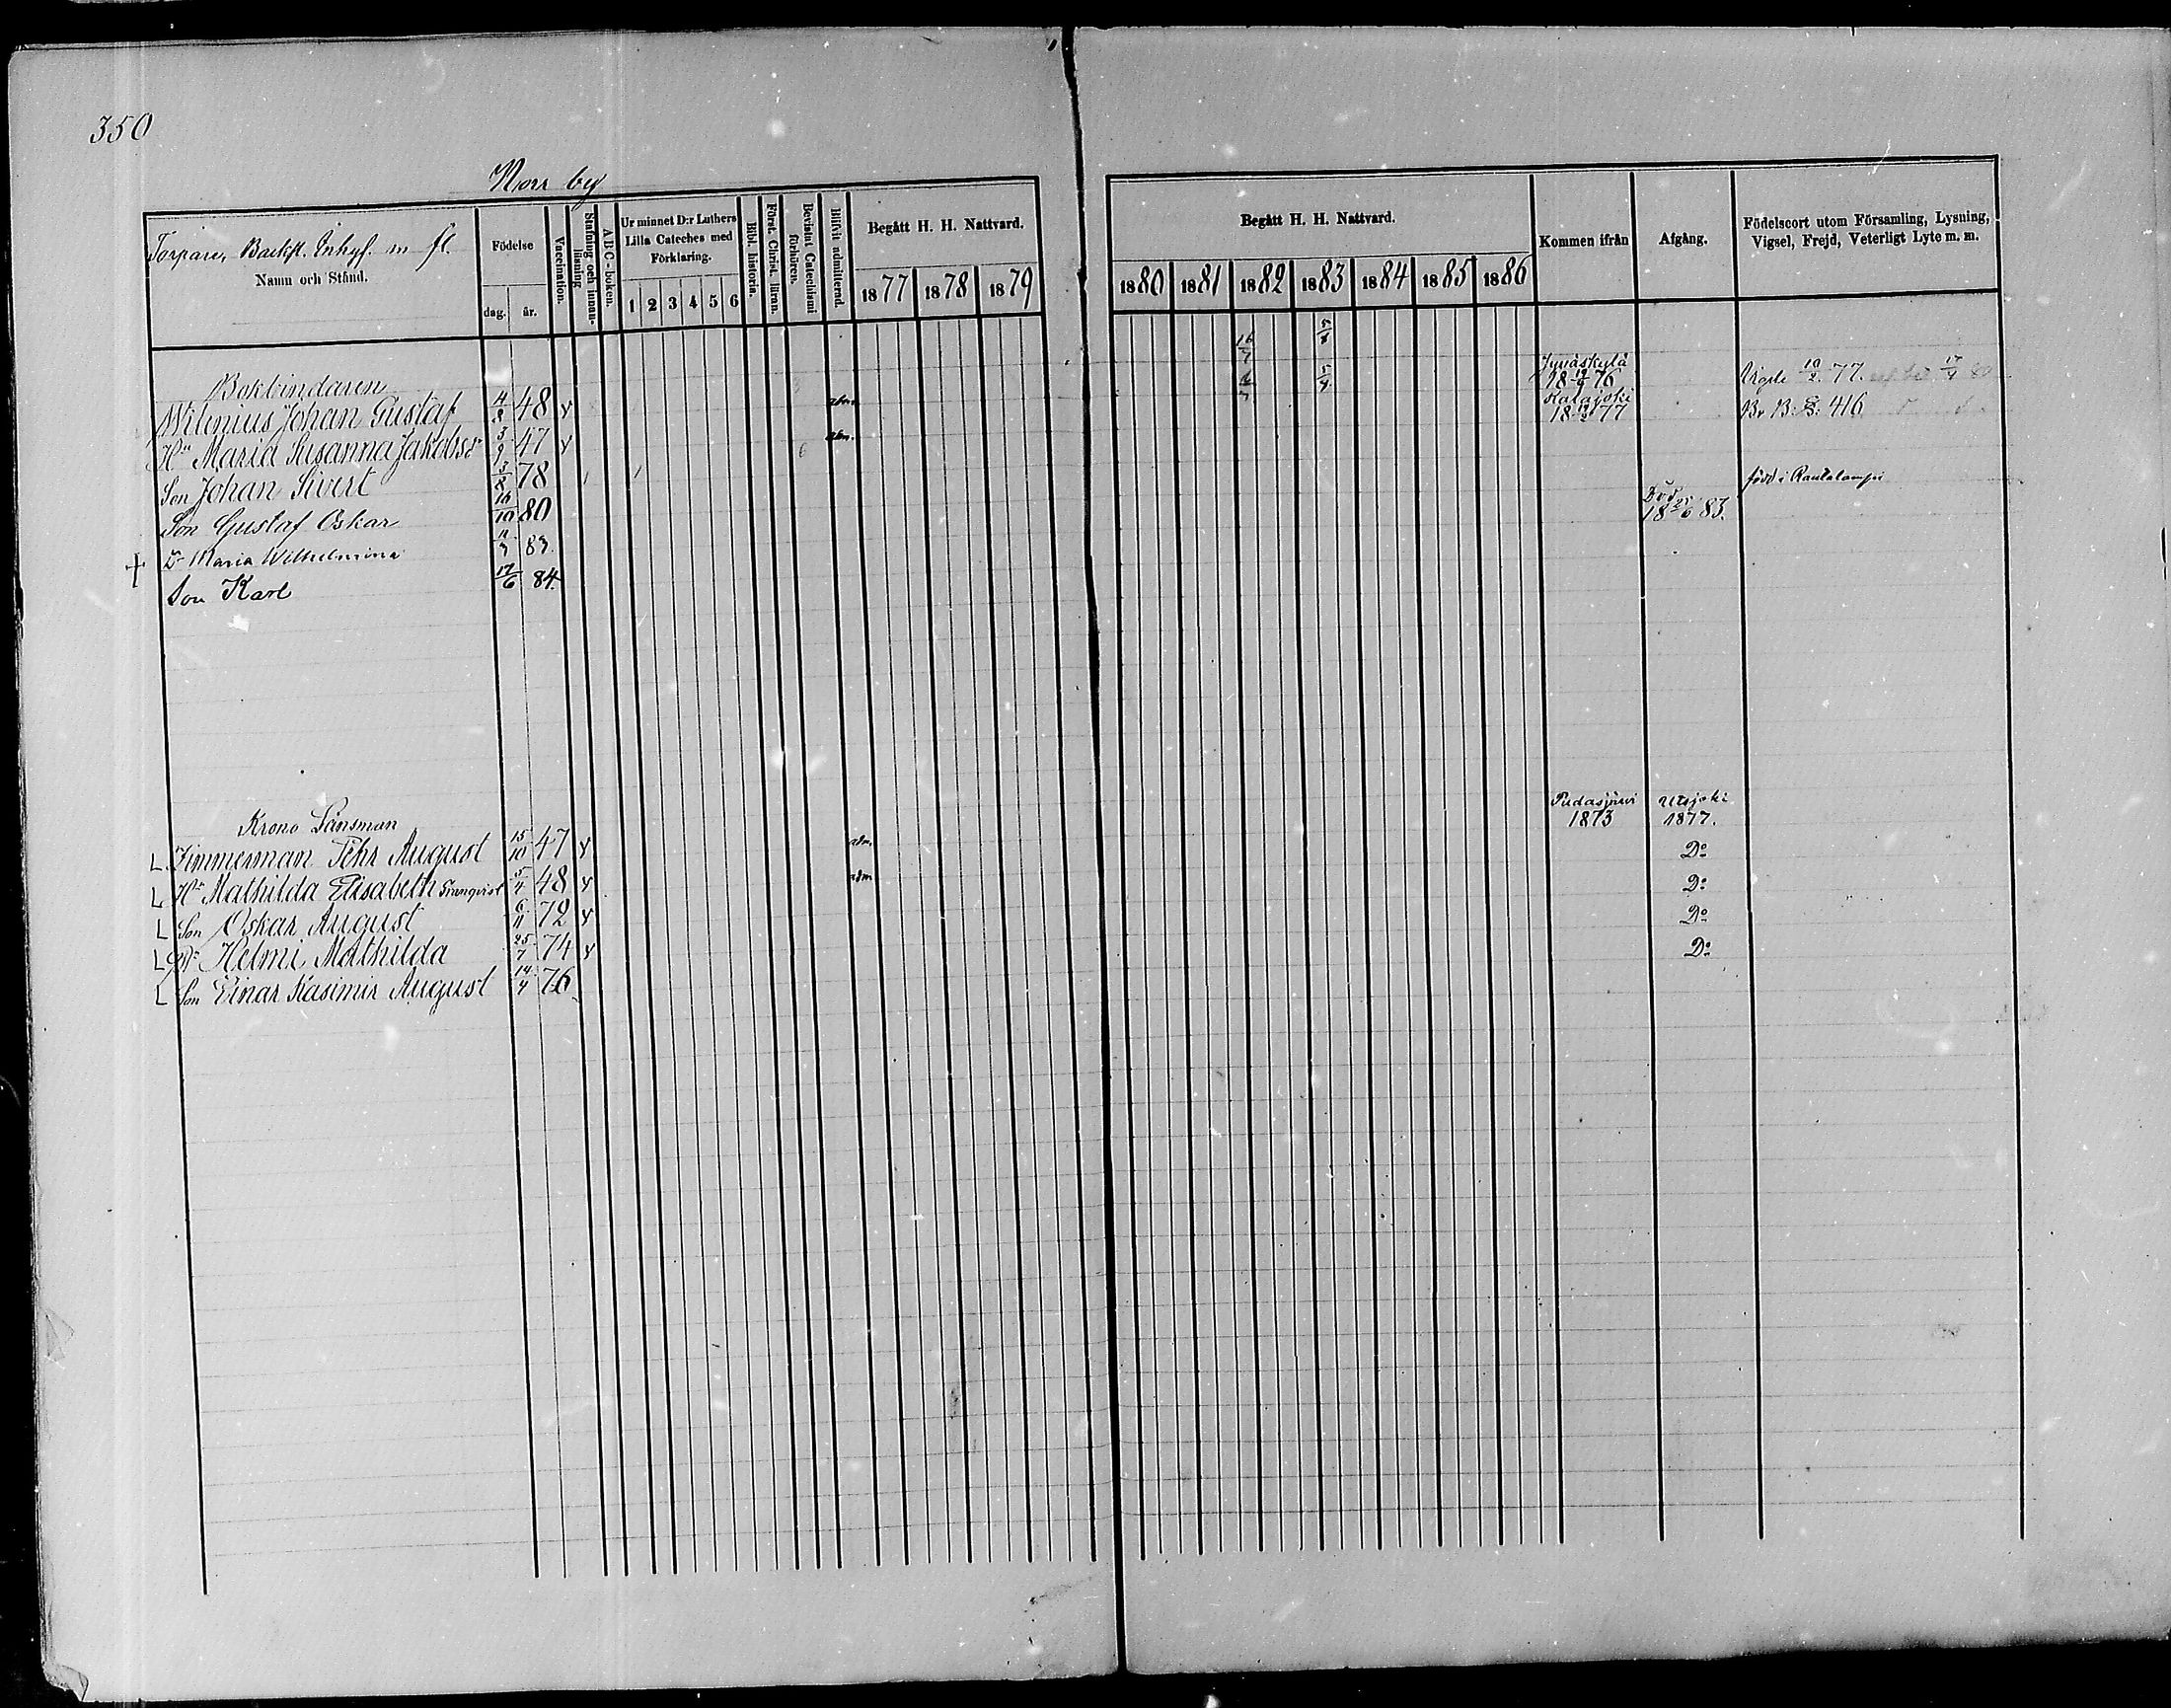 350
Norr by
Torpare, Backst. Inhys. m fl.
Namn och Stånd.
Födelse
dag. år.
Vaccination.
Stafning och innanläsning
A B C-boken.
Ur minnet D:r Luthers Lilla Cateches med Förklaring.
1 2 3 4 5 6
Bibl. historia.
Först. Christ. läran.
Bevistat Catechismi förhören.
Blifvit admitterad.
Begått H. H. Nattvard.
1877 1878 1879
Begått H. H. Nattvard.
1880 1881 1882 1883 1884 1885 1886
Kommen ifrån
Afgång.
Födelseort utom Församling, Lysning, Vigsel, Frejd, Veterligt Lyte m. m.
Bokbindaren
Wilenius Johan Gustaf 4/8 48 v adm. 16/7 5/8 Jyväskylä 18 76 Vigde 10/2 77.
Hu Maria Susanna Jakobsd 3/9 47 v adm. Kalajoki 18 77 Br. B: 416
Son Johan Sivert 3/8 78 född i Rautalampi
Son Gustaf Oskar 16/10 80
† Dr Maria Wilhelmina 11/3 83. Död 18 25/6 83.
Son Karl 17/6 84.
Krono Länsman
L Zimmerman Pehr August 15/10 47 v adm. Pudasjärvi 1873 Utsjoki 1877.
L Hu Mathilda Elisabeth Granqvist 5/4 48 v adm Do
L Son Oskar August 6/11 72 v Do
L Dr Helmi Mathilda 25/7 74 v Do
L Son Einar Kasimir August 14/4 76 Do